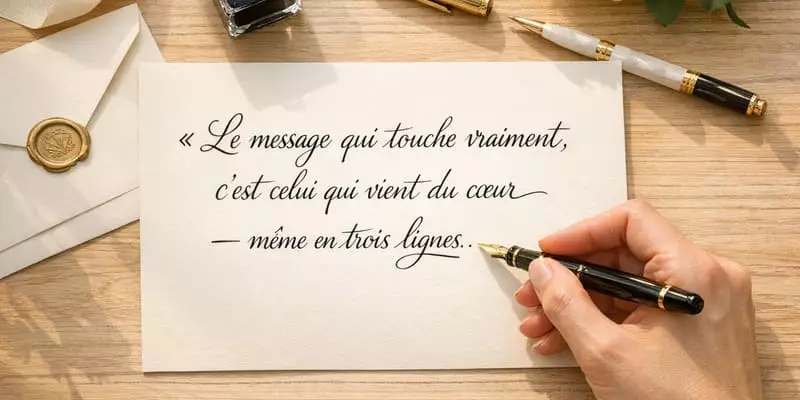 « Le message qui touche vraiment,
c'est celui qui vient du cœur
— même en trois lignes..